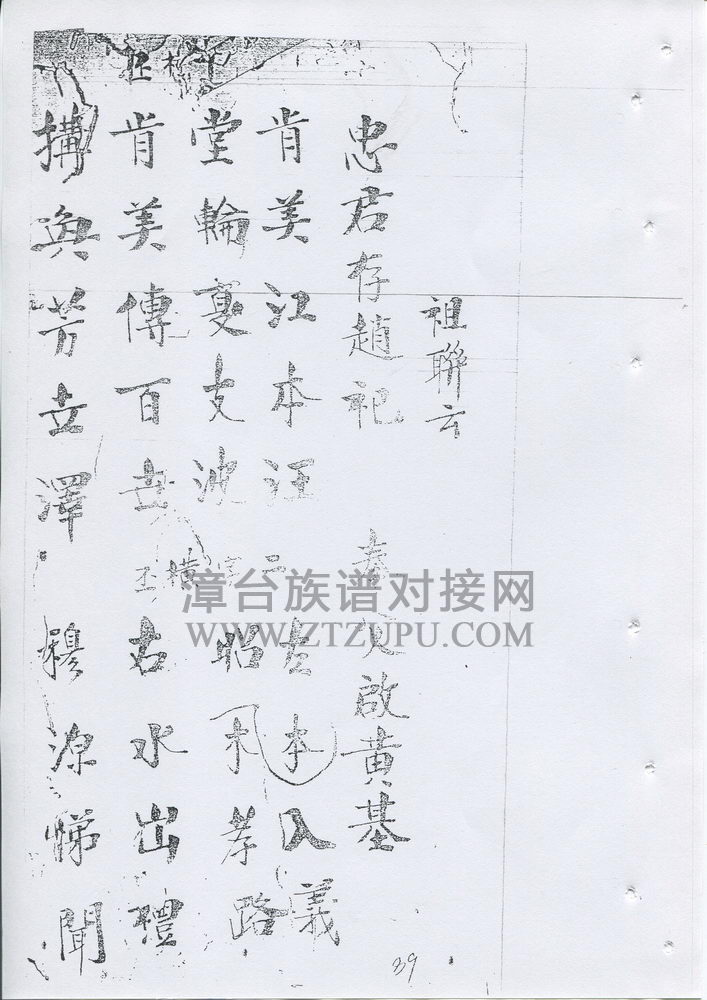 祖聯云
忠君存趙祀
啟黃基
肯美江本汪
本入義
堂輪夏支波
昭木孝路
肯美傳百世
右水出禮
搆奐芳立澤
穆源悌聞
漳台族谱对接网
WWW.ZTZUPU.COM
39